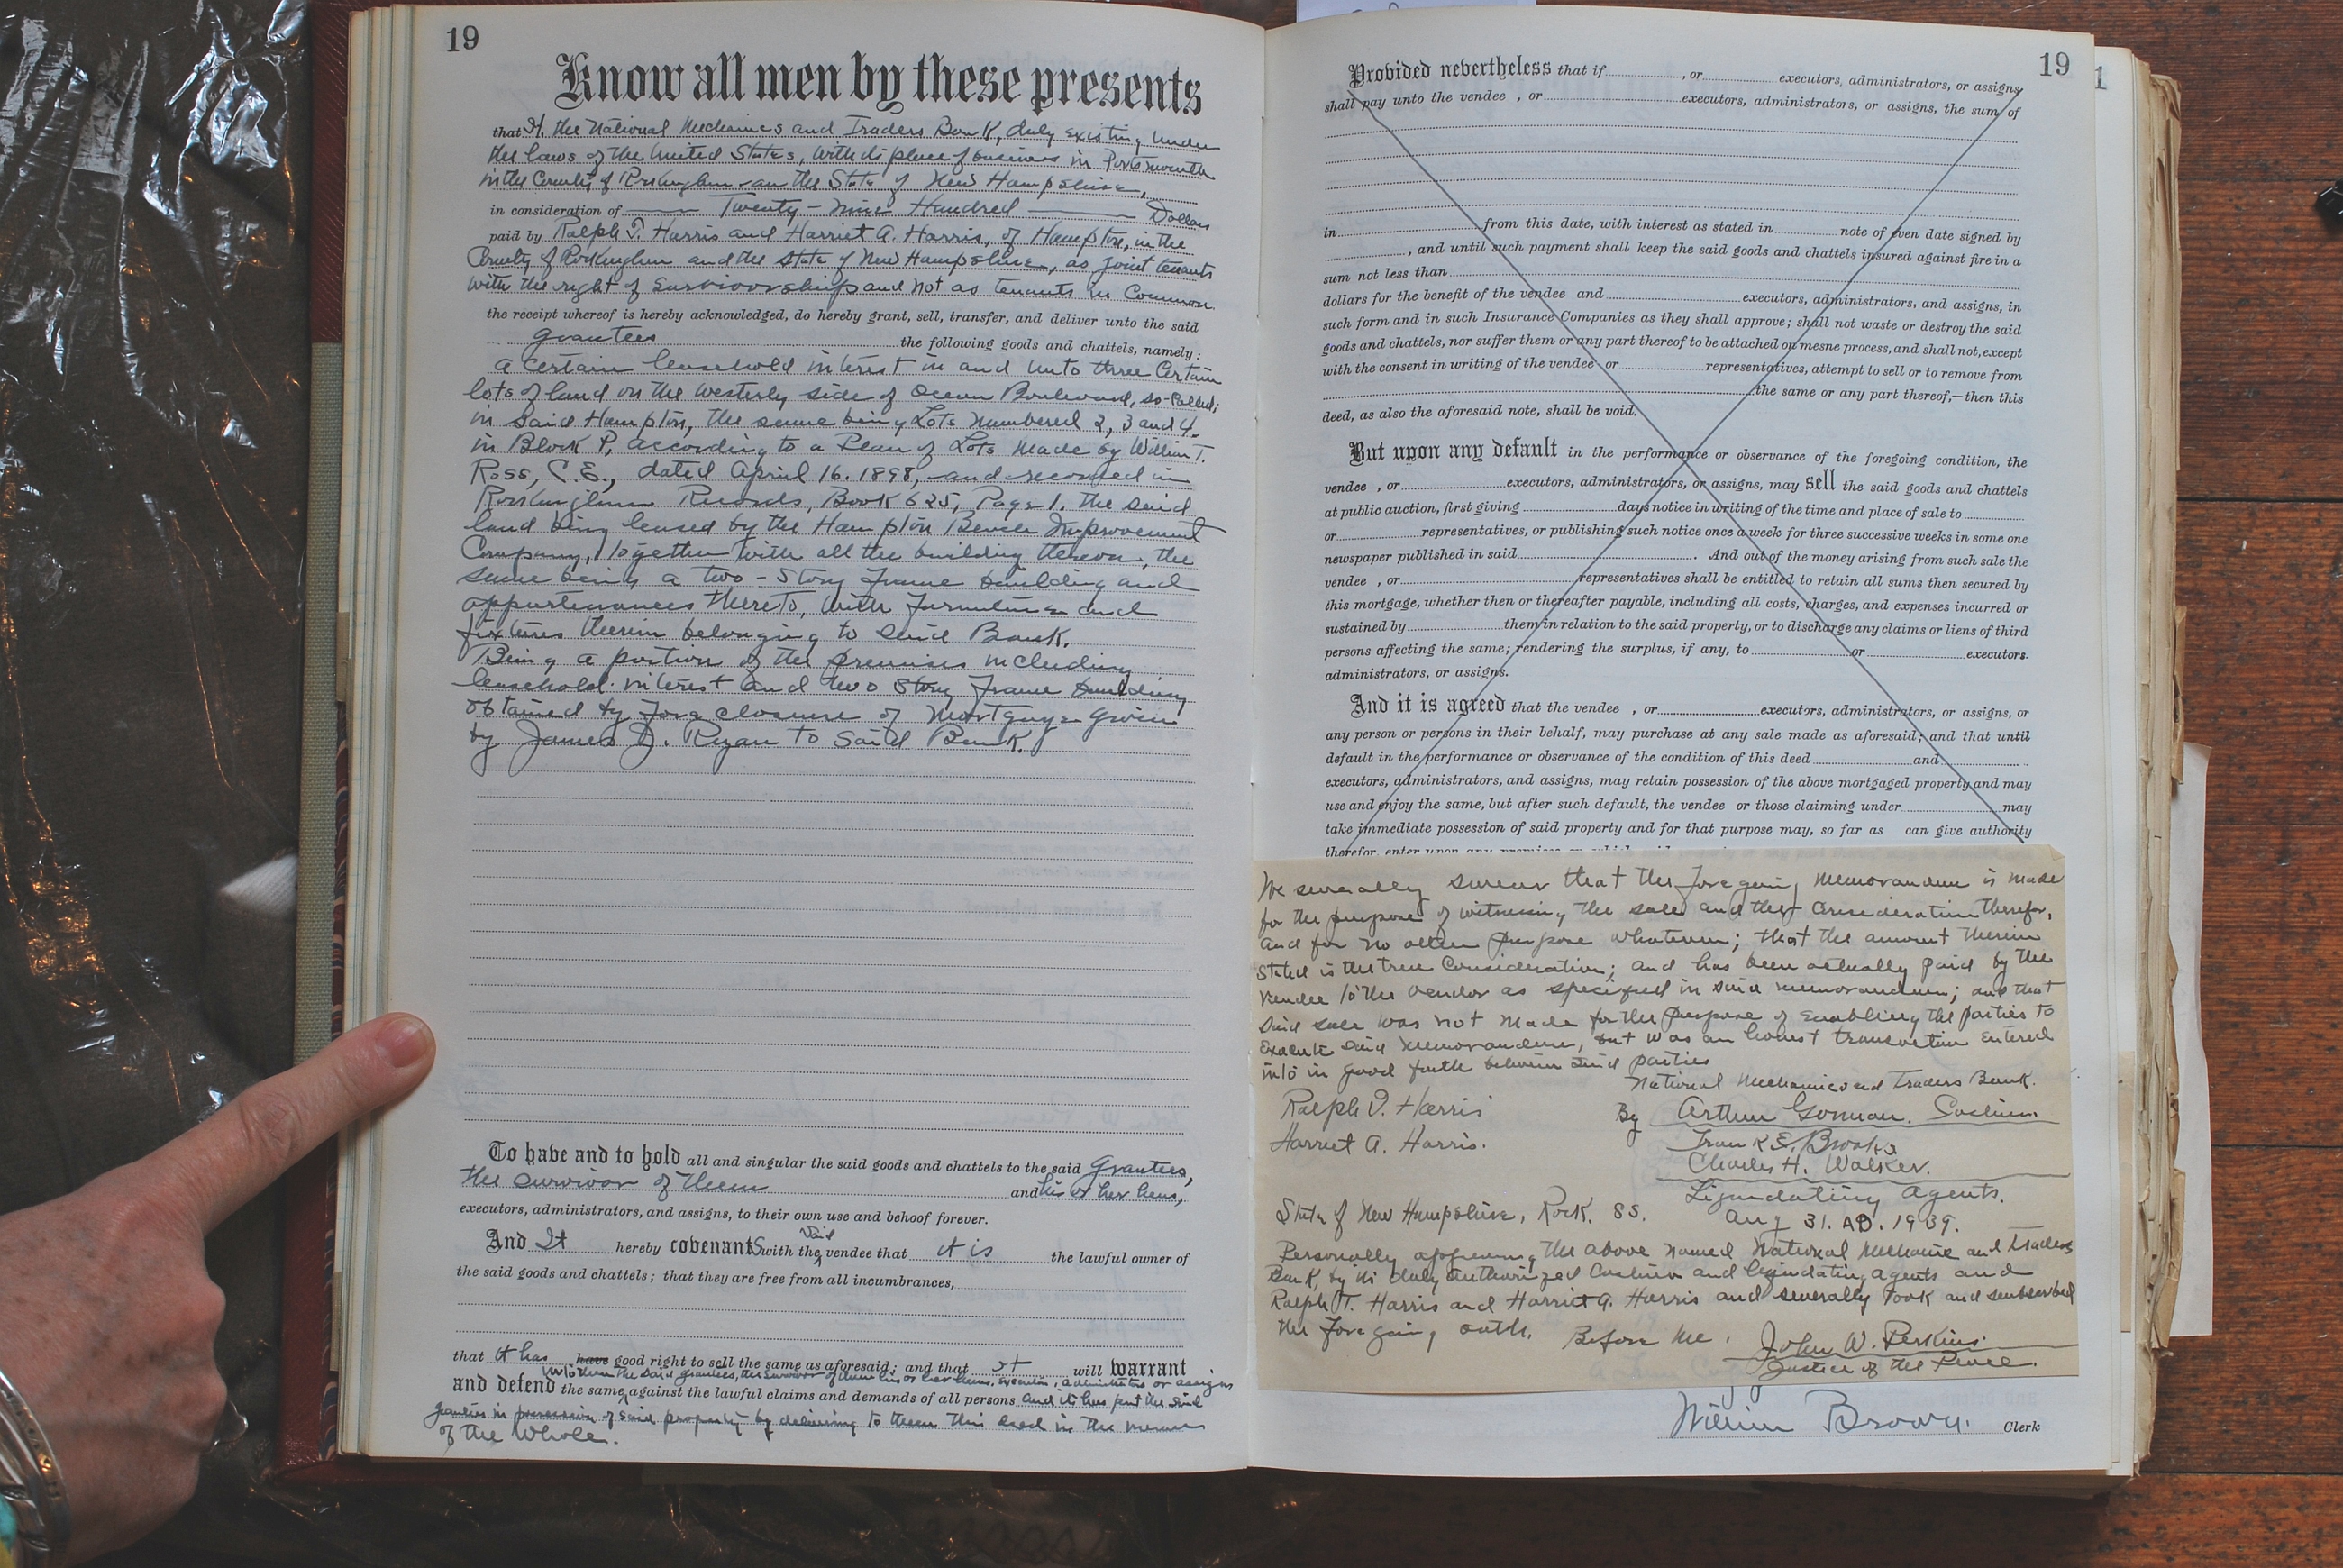 19
Know all men by these presents
that It, the National Mechanics and Traders Bank, duly existing under
the laws of the United States, with its place of business in Portsmouth
in the County of Rockingham and the State of New Hampshire,
in consideration of Twenty-nine Hundred Dollars
paid by Ralph T. Harris and Harriet A. Harris, of Hampton, in the
County of Rockingham and the State of New Hampshire, as joint tenants
with the right of survivorship and not as tenants in Common
the receipt whereof is hereby acknowledged, do hereby grant, sell, transfer, and deliver unto the said
grantees the following goods and chattels, namely:
a certain leasehold interest in and unto three certain
lots of land on the westerly side of Ocean Boulevard, so-called,
in said Hampton, the same being Lots numbered 2, 3 and 4.
in Block P, according to a Plan of Lots made by William T.
Ross, C.E., dated April 16. 1898, and recorded in
Rockingham Records, Book 625, Page 1. The said
land being leased by the Hampton Beach Improvement
Company, together with all the building thereon, the
same being a two-story frame building and
appurtenances thereto, with furniture and
fixtures therein belonging to said Bank.
Being a portion of the premises including
leasehold interest and two story frame building
obtained by foreclosure of mortgage given
by James J. Ryan to said Bank.
To have and to hold all and singular the said goods and chattels to the said Grantees,
the survivor of them and his or her heirs,
executors, administrators, and assigns, to their own use and behoof forever.
And It hereby covenants with the said vendee that it is the lawful owner of
the said goods and chattels; that they are free from all incumbrances,
that it has have good right to sell the same as aforesaid; and that it will warrant
unto them the said grantees, the survivor of them his or her heirs, executors, administrators or assigns
and defend the same against the lawful claims and demands of all persons and it has put the said
grantees in possession of said property by delivering to them this deed in the name
of the whole.
19
1
Provided nevertheless that if , or executors, administrators, or assigns
shall pay unto the vendee , or executors, administrators, or assigns, the sum of
in from this date, with interest as stated in note of even date signed by
, and until such payment shall keep the said goods and chattels insured against fire in a
sum not less than
dollars for the benefit of the vendee and executors, administrators, and assigns, in
such form and in such Insurance Companies as they shall approve; shall not waste or destroy the said
goods and chattels, nor suffer them or any part thereof to be attached on mesne process, and shall not, except
with the consent in writing of the vendee or representatives, attempt to sell or to remove from
the same or any part thereof,—then this
deed, as also the aforesaid note, shall be void.
But upon any default in the performance or observance of the foregoing condition, the
vendee , or executors, administrators, or assigns, may sell the said goods and chattels
at public auction, first giving days notice in writing of the time and place of sale to
or representatives, or publishing such notice once a week for three successive weeks in some one
newspaper published in said . And out of the money arising from such sale the
vendee , or representatives shall be entitled to retain all sums then secured by
this mortgage, whether then or thereafter payable, including all costs, charges, and expenses incurred or
sustained by them in relation to the said property, or to discharge any claims or liens of third
persons affecting the same; rendering the surplus, if any, to or executors.
administrators, or assigns.
And it is agreed that the vendee , or executors, administrators, or assigns, or
any person or persons in their behalf, may purchase at any sale made as aforesaid; and that until
default in the performance or observance of the condition of this deed and
executors, administrators, and assigns, may retain possession of the above mortgaged property and may
use and enjoy the same, but after such default, the vendee or those claiming under may
take immediate possession of said property and for that purpose may, so far as can give authority
therefor, enter upon any premises on which said
We severally swear that the foregoing memorandum is made
for the purpose of witnessing the sale and the consideration therefor,
and for no other purpose whatever; that the amount therein
stated is the true consideration; and has been actually paid by the
vendee to the vendor as specified in said memorandum; and that
said sale was not made for the purpose of enabling the parties to
execute said memorandum, but was an honest transaction entered
into in good faith between said parties
National Mechanics and Traders Bank.
Ralph T. Harris By Arthur Gorman. Cashier
Harriet A. Harris. Frank E. Brooks
Charles H. Walker.
Liquidating Agents.
State of New Hampshire, Rock. SS. Aug 31. AD. 1939.
Personally appearing the above named National Mechanic and Traders
Bank by its duly authorized Cashier and liquidating agents and
Ralph T. Harris and Harriet A. Harris and severally took and subscribed
the foregoing oath. Before me, John W. Perkins
Justice of the Peace.
William Brown. Clerk